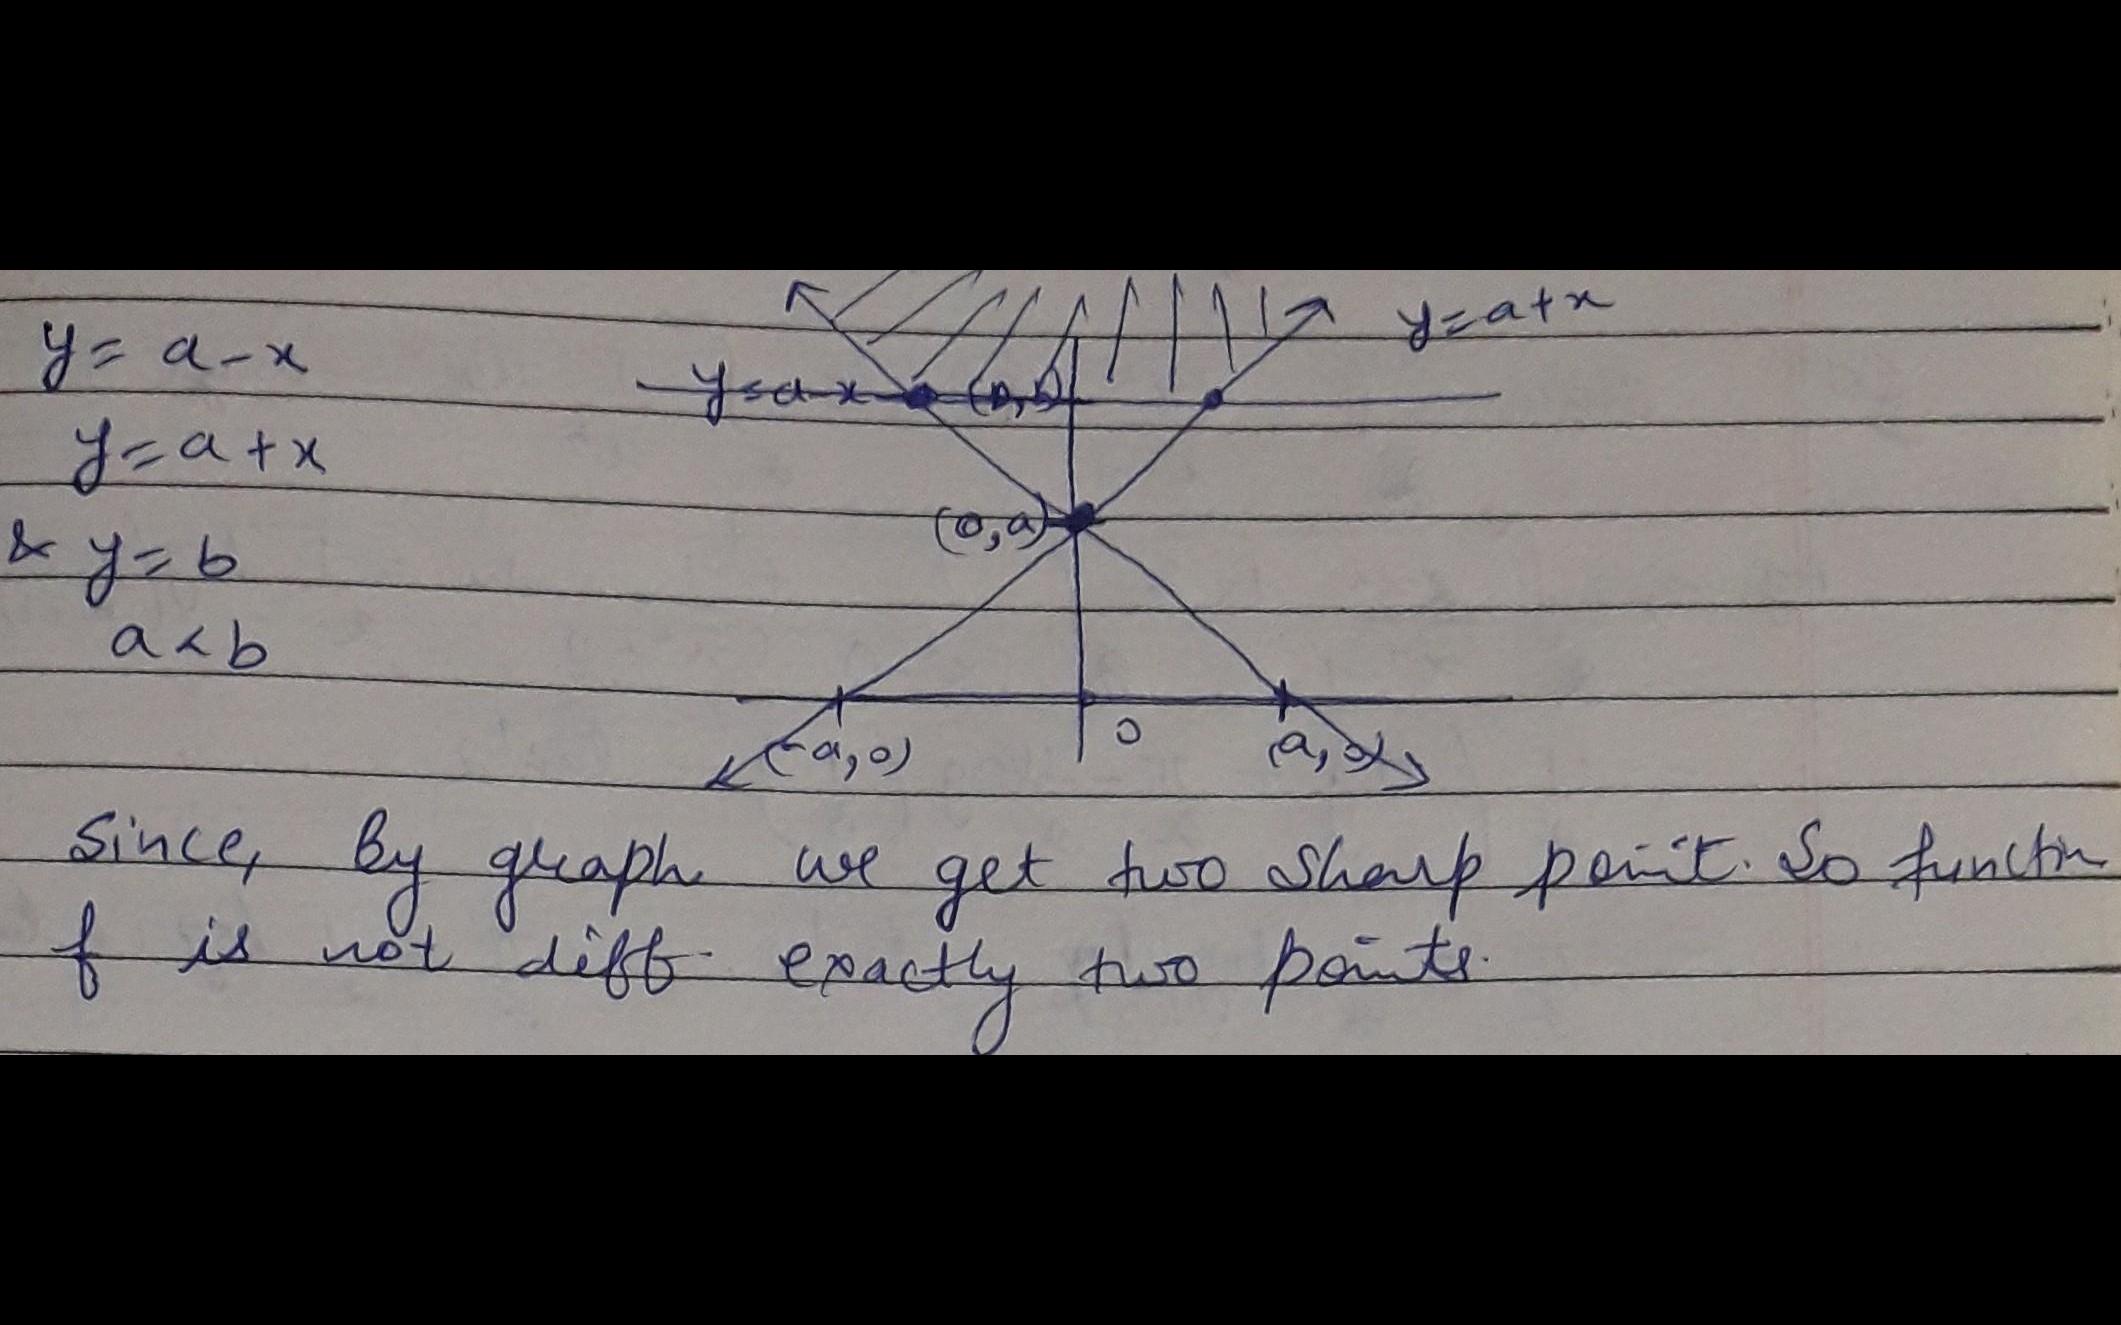 y = a - x
y = a + x
y = a + x
y = a - x
(0, b)
& y = b
(0, a)
a < b
(-a, 0)
0
(a, 0)
Since, By graph we get two sharp point. So functin
f is not diff. exactly two points.